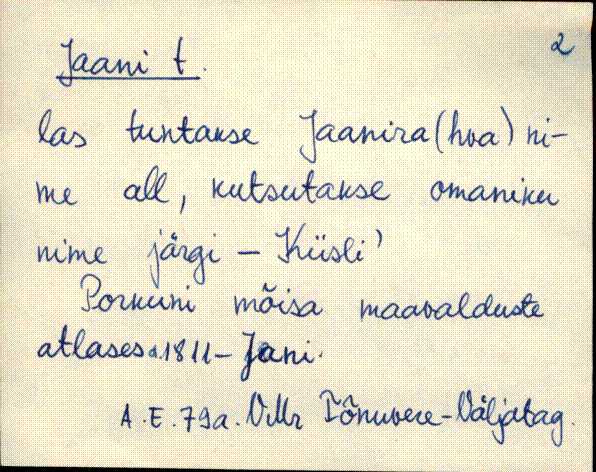 2
Jaani t.
las tuntakse Jaanira(hva) ni-
me all, kutsutakse omaniku
nime järgi – Küsli'
Porkuni mõisa maavalduste
atlases a. 1811 – Jani.
A. E. 79a. VMr Tõnuvere-Väljatag.